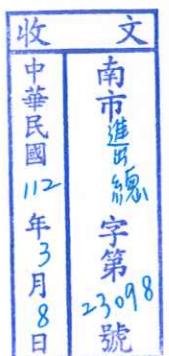 收文
南市進出總字第23098號
中華民國112年3月8日